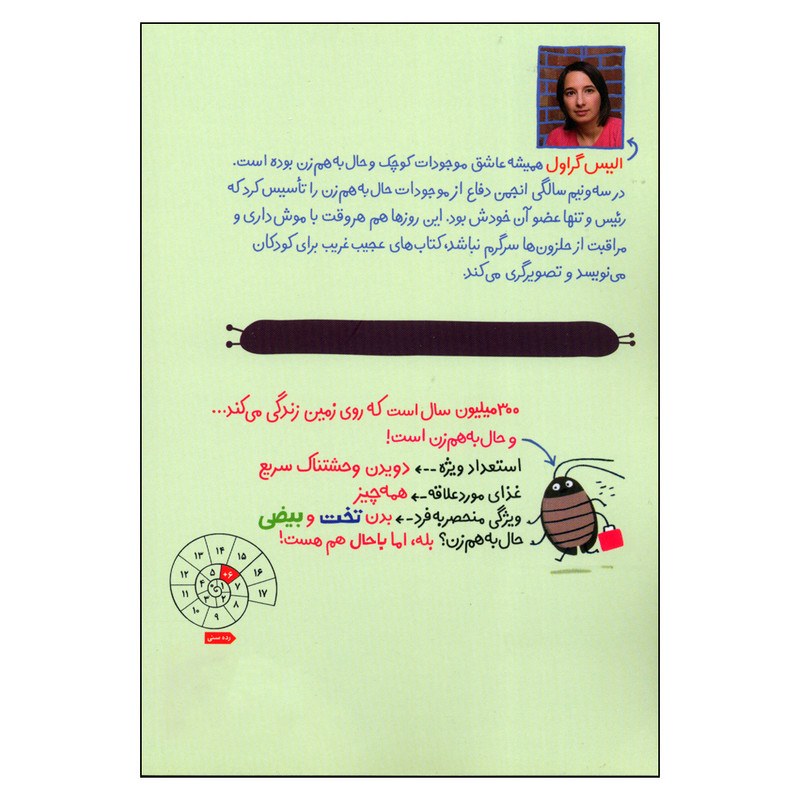 الیس گراول همیشه عاشق موجودات کوچک و حال‌به‌هم‌زن بوده است.
در سه‌و‌نیم سالگی انجمن دفاع از موجودات حال‌به‌هم‌زن را تأسیس کرد که
رئیس و تنها عضو آن خودش بود. این روزها هم هروقت با موش‌داری و
مراقبت از حلزون‌ها سرگرم نباشد، کتاب‌های عجیب غریب برای کودکان
می‌نویسد و تصویرگری می‌کند.
۳۰۰ میلیون سال است که روی زمین زندگی می‌کند...
و حال‌به‌هم‌زن است!
استعداد ویژه --← دویدن وحشتناک سریع
غذای موردعلاقه -← همه‌چیز
ویژگی منحصربه‌فرد -← بدن تخت و بیضی
حال‌به‌هم‌زن؟ بله، اما باحال هم هست!
۱
۲
۳
۴
۵
۰۶
۷
۸
۹
۱۰
۱۱
۱۲
۱۳
۱۴
۱۵
۱۶
۱۷
رده سنی